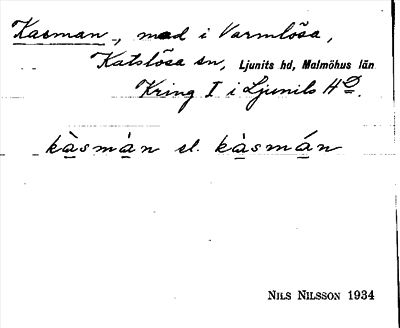 Kasman, mad i Varmlösa,
Katslösa sn, Ljunits hd, Malmöhus län
Kring I i Ljunits HD.
kàsmàn el. kàsmán
NILS NILSSON 1934